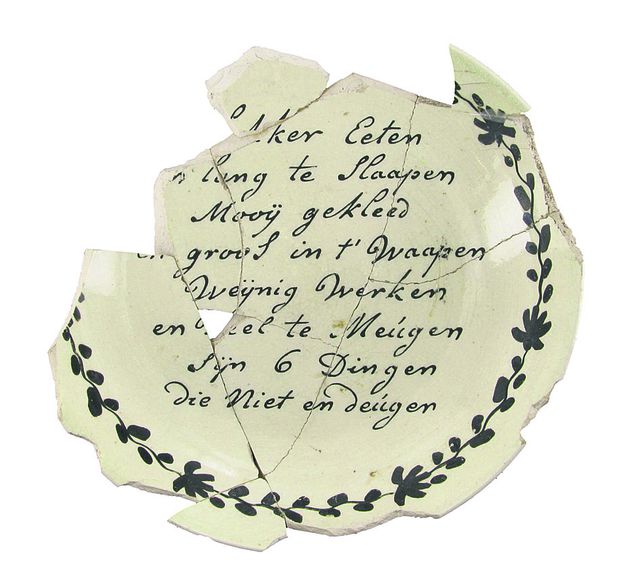 Eeten
lang te Slaapen
Mooÿ gekleed
en groos in t' Waapen
Weÿnig Werken
en te Meúgen
Sÿn 6 Dingen
die Niet en deúgen